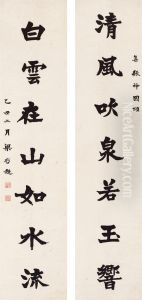 集張神囧頌
清風吹泉若玉響
白雲在山如水流
乙丑二月 梁啟超